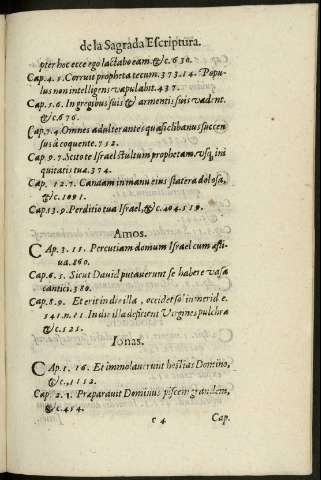 de la Sagrada Escriptura.
pter hoc ecce ego lactabo eam. &c. 630.
Cap. 4. 5. Corruit propheta tecum. 373. 14. Popu-
lus non intelligens vapulabit. 437.
Cap. 5. 6. In gregibus suis & armentis suis vadent.
&c. 676.
Cap. 7. 4. Omnes adulterantes quasi clibanus succen
sus à coquente. 752.
Cap. 9. 7. Scitote Israel stultum prophetam. vsq, ini
quitatis tua. 374.
Cap. 12. 7. Canaam in manu eius statera dolosa,
&c. 1091.
Cap. 13. 9. Perditio tua Israel, &c. 404. 519.
Amos.
CAp. 3. 15. Percutiam domum Israel cum æsti-
ua. 860.
Cap. 6. 5. Sicut Dauid putauerunt se habere vasa
cantici. 380.
Cap. 8. 9. Et erit in die illa, occidet sol in meridie.
541. n. 11. In die illa deficient Virgines pulchræ
&c. 525.
Ionas.
CAp. 1. 16. Et immolauerunt hostias Domino,
&c. 1152.
Cap. 2. 1. Præparauit Dominus piscem grandem,
&c. 454.
c 4 Cap.